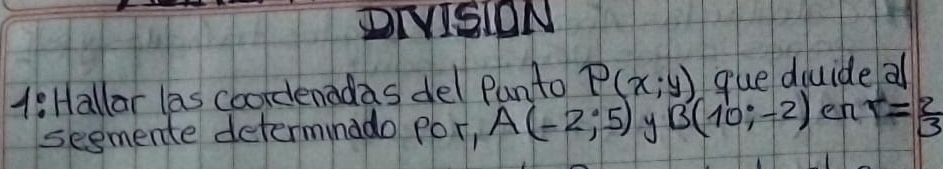 DIVISION
1: Hallar las coordenadas del Punto P(x;y) que divide al
segmente determinado por, A(-2;5) y B(10;-2) en r=2/3